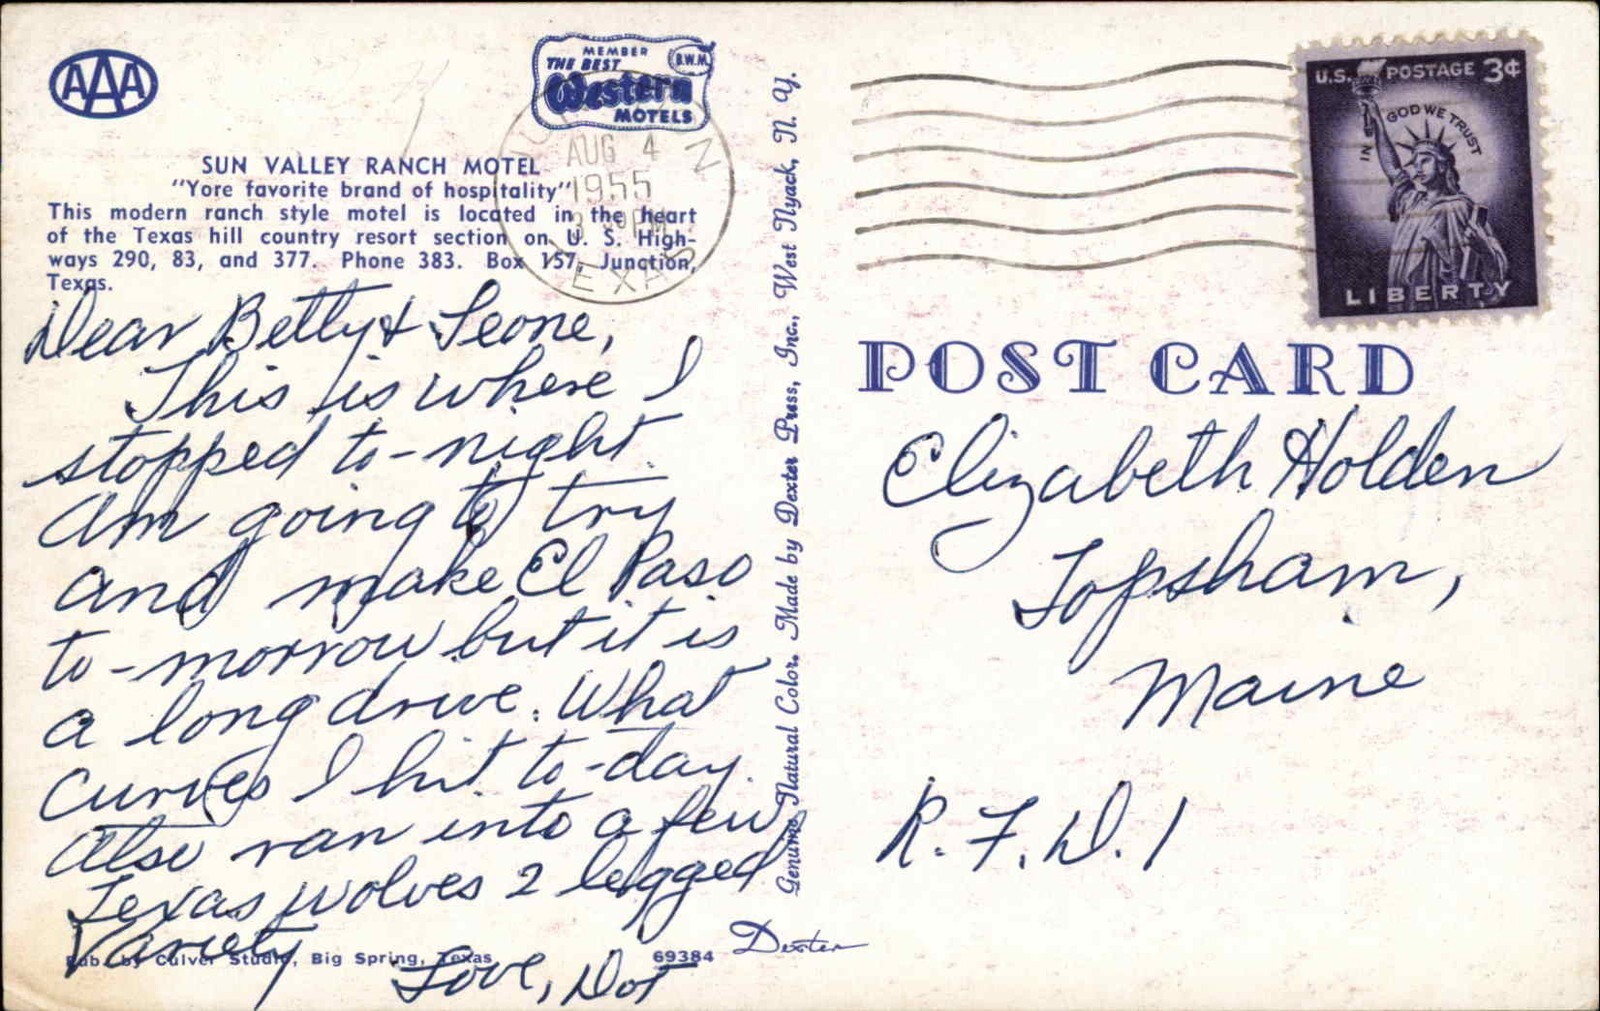 AAA
MEMBER
THE BEST
B.W.M.
Western
MOTELS
SUN VALLEY RANCH MOTEL
"Yore favorite brand of hospitality"
This modern ranch style motel is located in the heart
of the Texas hill country resort section on U. S. High-
ways 290, 83, and 377. Phone 383. Box 157, Junction,
Texas.
AUG 4
1955
PM
TEXAS
Dear Betty & Leone,
This is where I
stopped to-night.
Am going to try
and make El Paso
to-morrow but it is
a long drive. What
curves I hit to-day.
Also ran into a few
Texas wolves 2 legged
Variety
Love, Dot
Pub. by Culver Studio, Big Spring, Texas
69384
Dexter
Genuine Natural Color. Made by Dexter Press, Inc., West Nyack, N. Y.
U.S. POSTAGE 3¢
IN GOD WE TRUST
LIBERTY
POST CARD
Elizabeth Holden
Topsham,
Maine
R.F.D. 1